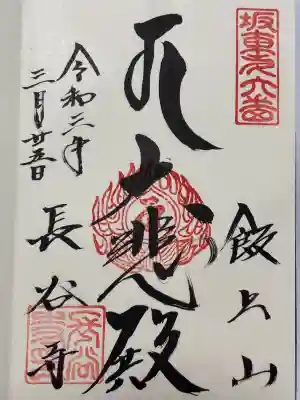 坂東㐧六番
飯上山
大悲殿
長谷寺
令和三年
三月廿五日